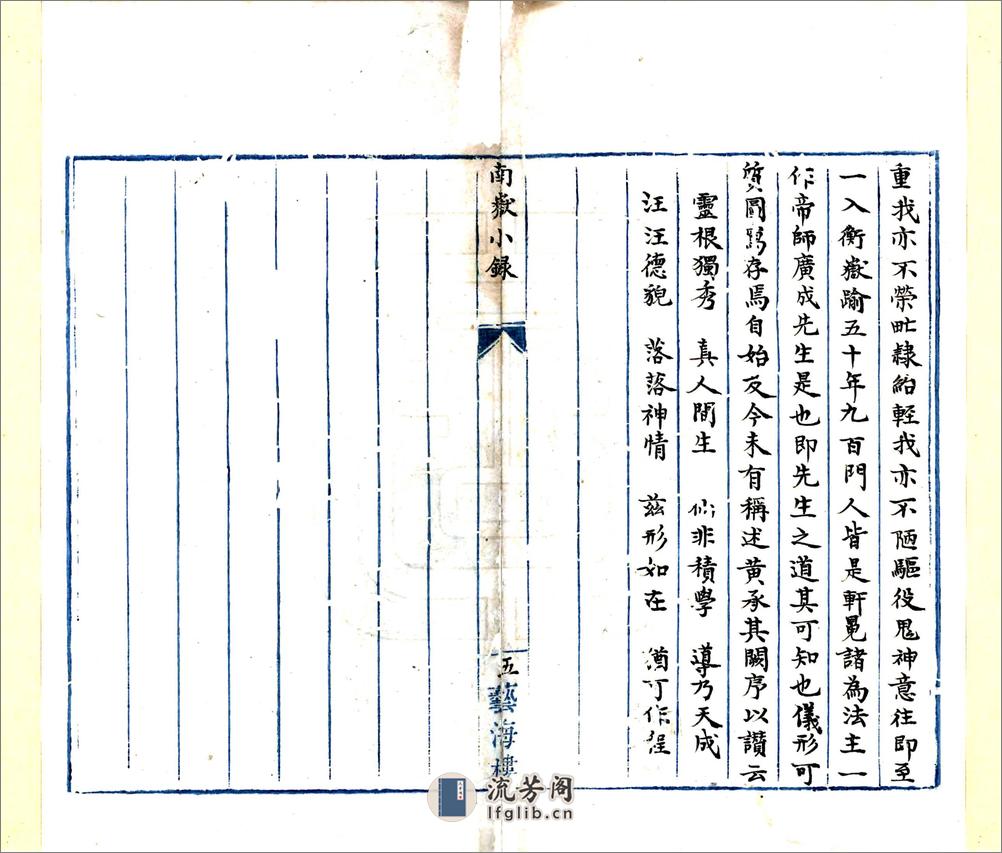 重我亦不榮甿隷紿輕我亦不陋驅役鬼神意往即至
一入衡嶽踰五十年九百門人皆是軒冕諸為法主一
作帝師廣成先生是也即先生之道其可知也儀形可
質圖寫存焉自始及今未有稱述黄承其闕序以讚云
靈根獨秀 真人間生 仙非積學 導乃天成
汪汪德貌 落落神情 兹形如在 猶可作程
南嶽小録
五
藝海樓
流芳阁
lfglib.cn